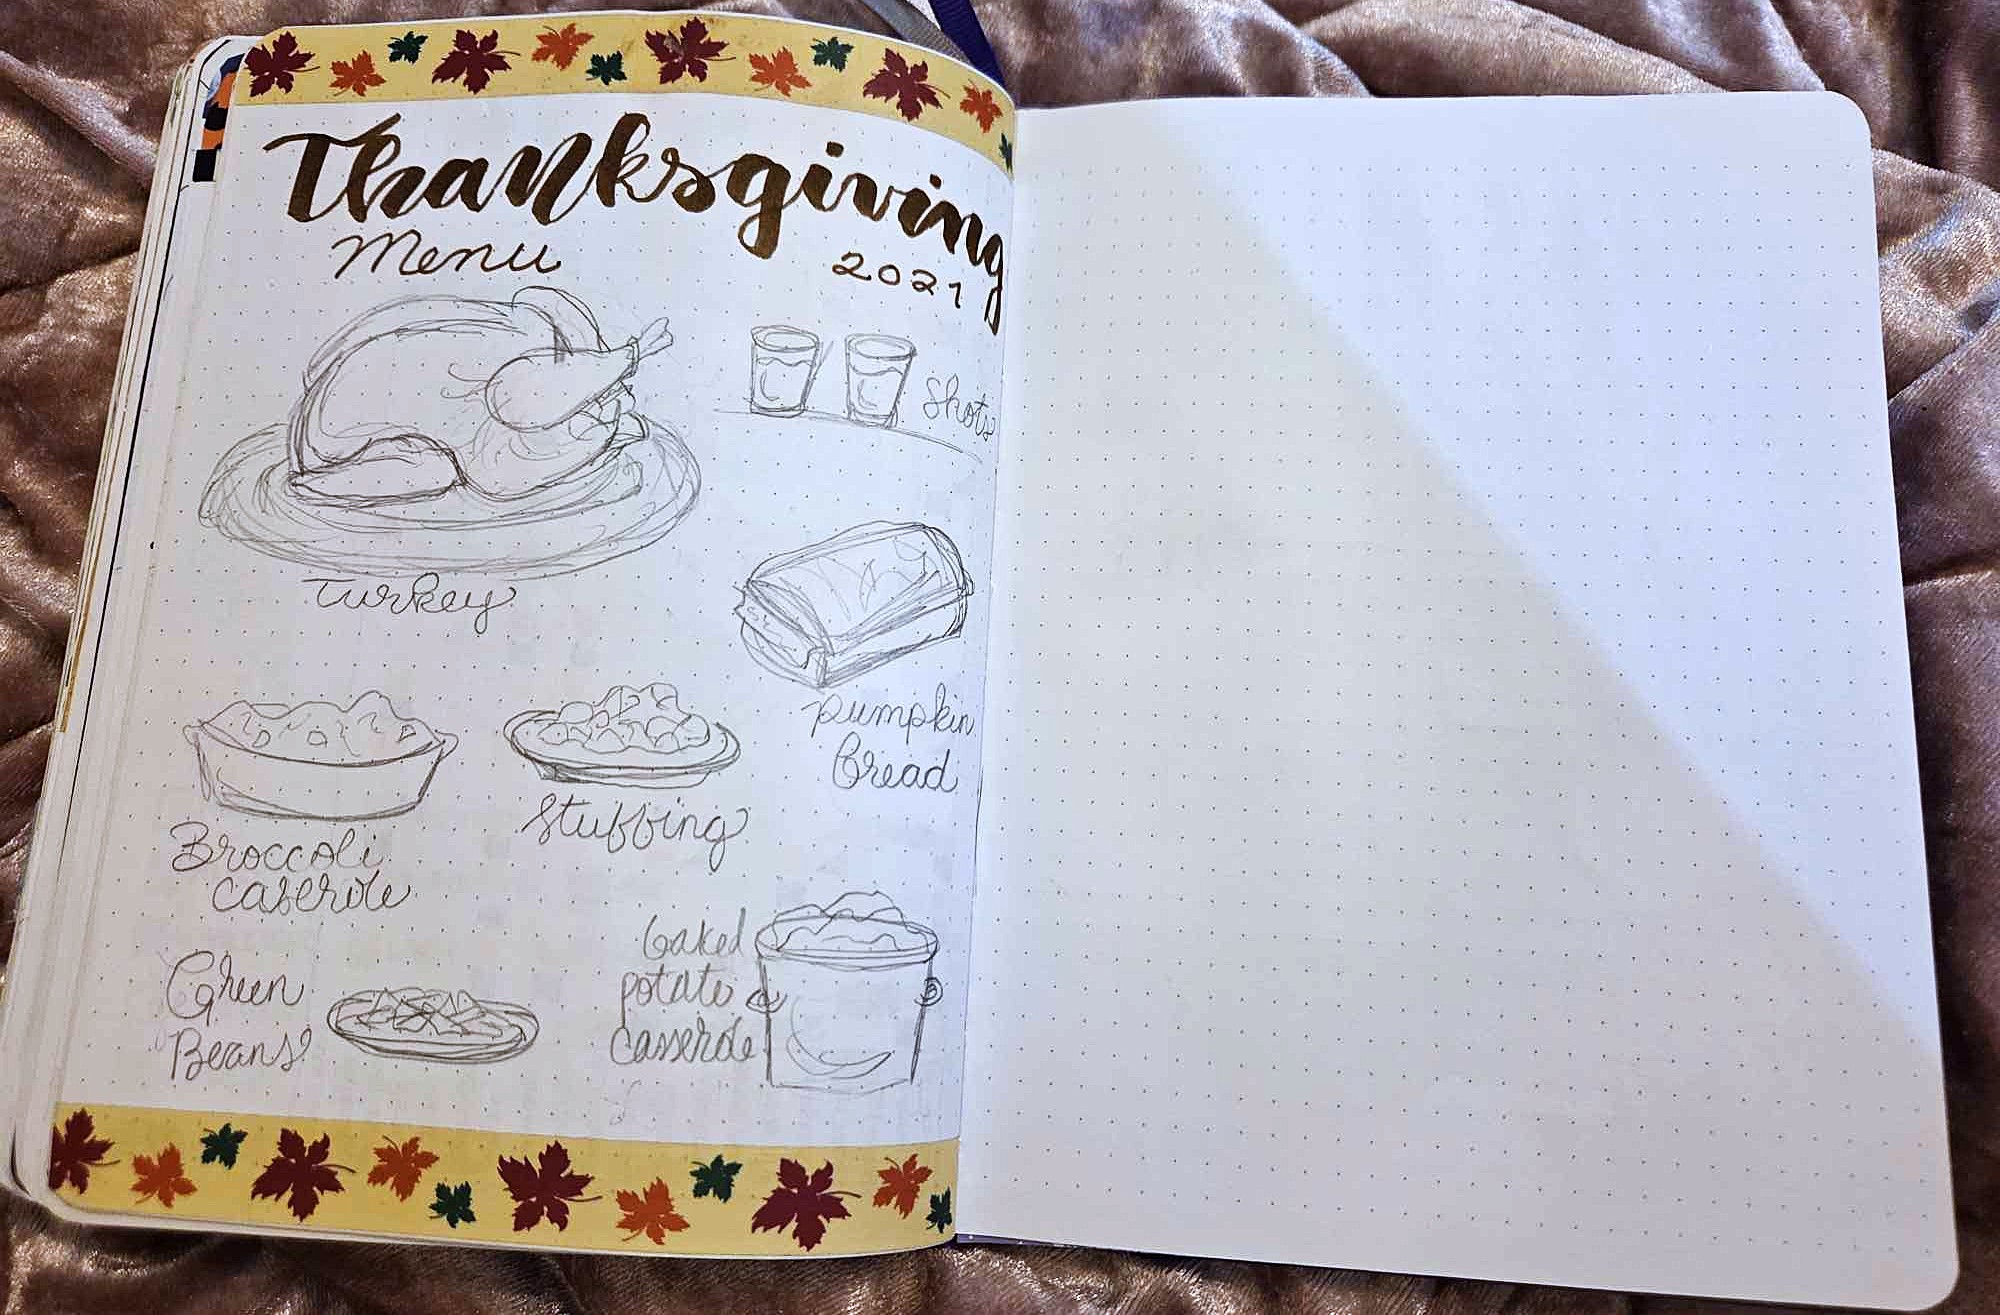 Thanksgiving
Menu
2021
Shots
Turkey
pumpkin
bread
Stuffing
Broccoli
caserole
baked
potato
casserole
Green
Beans